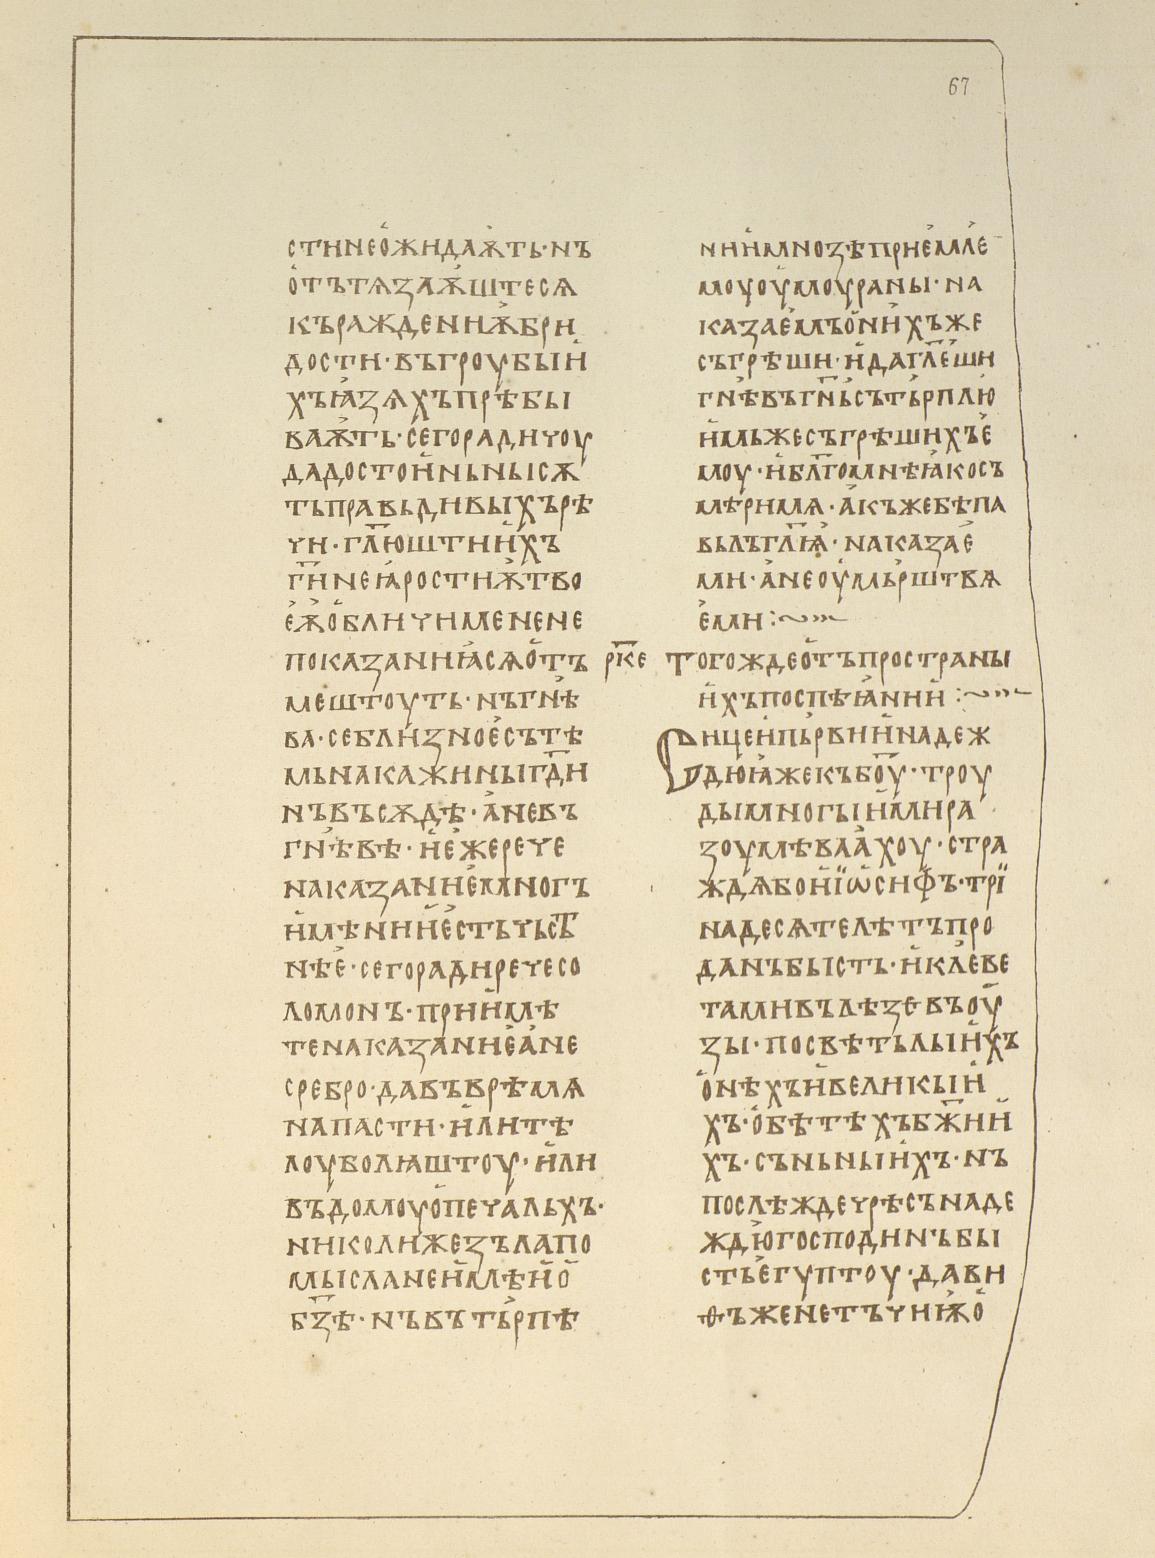 67
стинео҆жидаѭ҆ть· нъ
о҆тътѧзаѭ҆штесѧ
къражденнѭ҆бри
дости· въгроубыи҆
хъꙗ҆зѧхъпрѣбы
ваѭ҆ть· се҆горадичоу
дадостои҆ньнысѫ
тьправьдивыхърѣ
чи· гл҃юштнии҆хъ
г҃и҆неꙗ҆ростиѭ҆тво
е҆ѭ҆о҆бличименене
показаниꙗ҆сѧо҆тъ
мештоуть· нъгнѣ҆
ва· себлизное҆сътѣ
мьнакажиныг҃ди
нъвъсѫдѣ· а҆невъ
гнѣ҆вѣ· и҆е҆жерече
наказание҆многъ
и҆мѣнии҆е҆стьчьст҃ъ
нѣе҆· сегорадиречесо
ломонъ· приимѣ
тенаказание҆а҆не
сребро· давъврѣмѧ
напасти· и҆литѣ
лоуболꙗштоу· и҆ли
въдомоуо҆печа҆льхъ·
николижезълапо
мысланеи҆мѣи҆о҆
б҃зѣ· нъвътьрпѣ
нии҆мнозѣприе҆мле҆
моуоу҆моураны· на
казае҆мъо҆ни҆хъже
съгрѣши· и҆даг҃ле҆ши
гнѣ҆въг҃ньсътьрплю҆
и҆мьжесъгрѣшихъе҆
моу· и҆бл҃гомнѣꙗ҆косъ
мѣримѧ· а҆къжебѣпа
вьлъг҃лѭ҆· наказае҆
ми· а҆неоу҆мьрштвѧ
е҆ми :~
р҃ке тогождео҆тъпространы
и҆хъпоспѣꙗ҆нии҆ :~
Сицеи҆пьрвии҆надеж
дю҆ꙗ҆жекъбо҃у· троу
дымногыи҆мира
зоумѣваа҆хоу· стра
ждѧбои҆і҆ѡсифъ· трі
надесѧтелѣтъпро
данъбысть· и҆кле҆ве
тамивълѣзевъоу҆
зы· посвѣтьлыи҆хъ
о҆нѣхъи҆великыи҆
хъ· о҆бѣтѣхъбж҃ии҆
хъ· съньныи҆хъ· нъ
послѣждечрѣсънаде
ждю҆господинъбы
стье҆гуптоу· дави
ѳъженетъчиѭ҆о҆